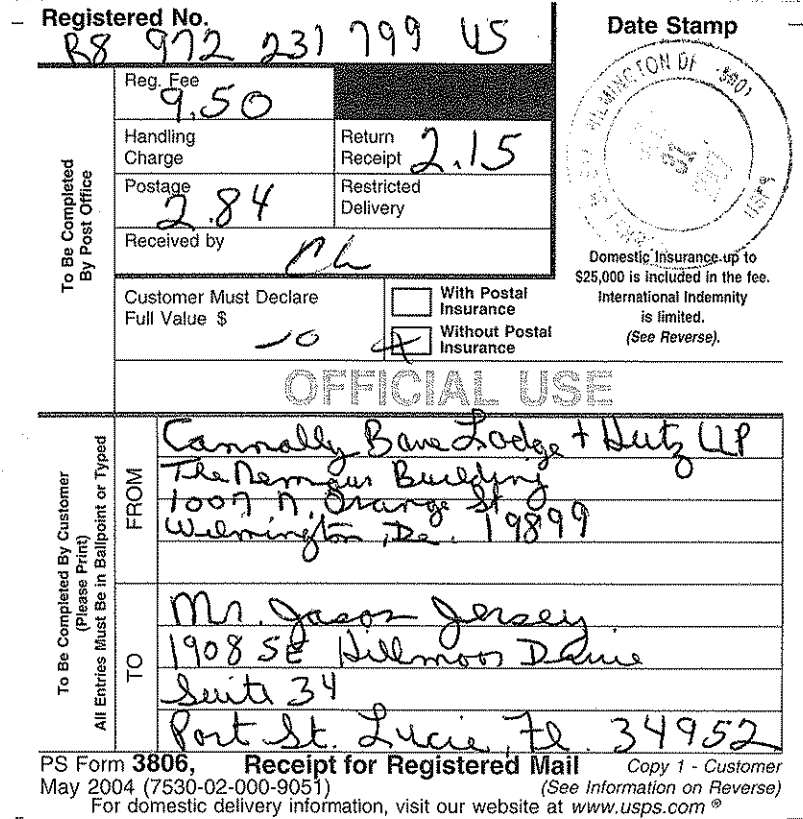 Registered No.
RB 972 231 799 US
Date Stamp
WILMINGTON DE 19801
USPS
To Be Completed By Post Office
Reg. Fee
9.50
Handling Charge
Return Receipt 2.15
Postage
2.84
Restricted Delivery
Received by
Customer Must Declare
Full Value $
With Postal Insurance
Without Postal Insurance
Domestic Insurance up to
$25,000 is included in the fee.
International Indemnity
is limited.
(See Reverse).
OFFICIAL USE
To Be Completed By Customer
(Please Print)
All Entries Must Be in Ballpoint or Typed
FROM
Connolly Bove Lodge + Hutz LLP
The Nemours Building
1007 N. Orange St
Wilmington, De. 19899
TO
Mr. Jason Jersey
1908 SE Hillmoor Drive
Suite 34
Port St. Lucie, Fl. 34952
PS Form 3806, Receipt for Registered Mail Copy 1 - Customer
May 2004 (7530-02-000-9051) (See Information on Reverse)
For domestic delivery information, visit our website at www.usps.com ®